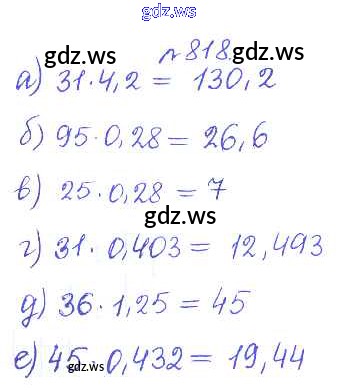 gdz.ws
№818.
gdz.ws
gdz.ws
а) 31·4,2 = 130,2
б) 95·0,28 = 26,6
в) 25·0,28 = 7
gdz.ws
г) 31·0,403 = 12,493
д) 36·1,25 = 45
gdz.ws
gdz.ws
е) 45·0,432 = 19,44
gdz.ws